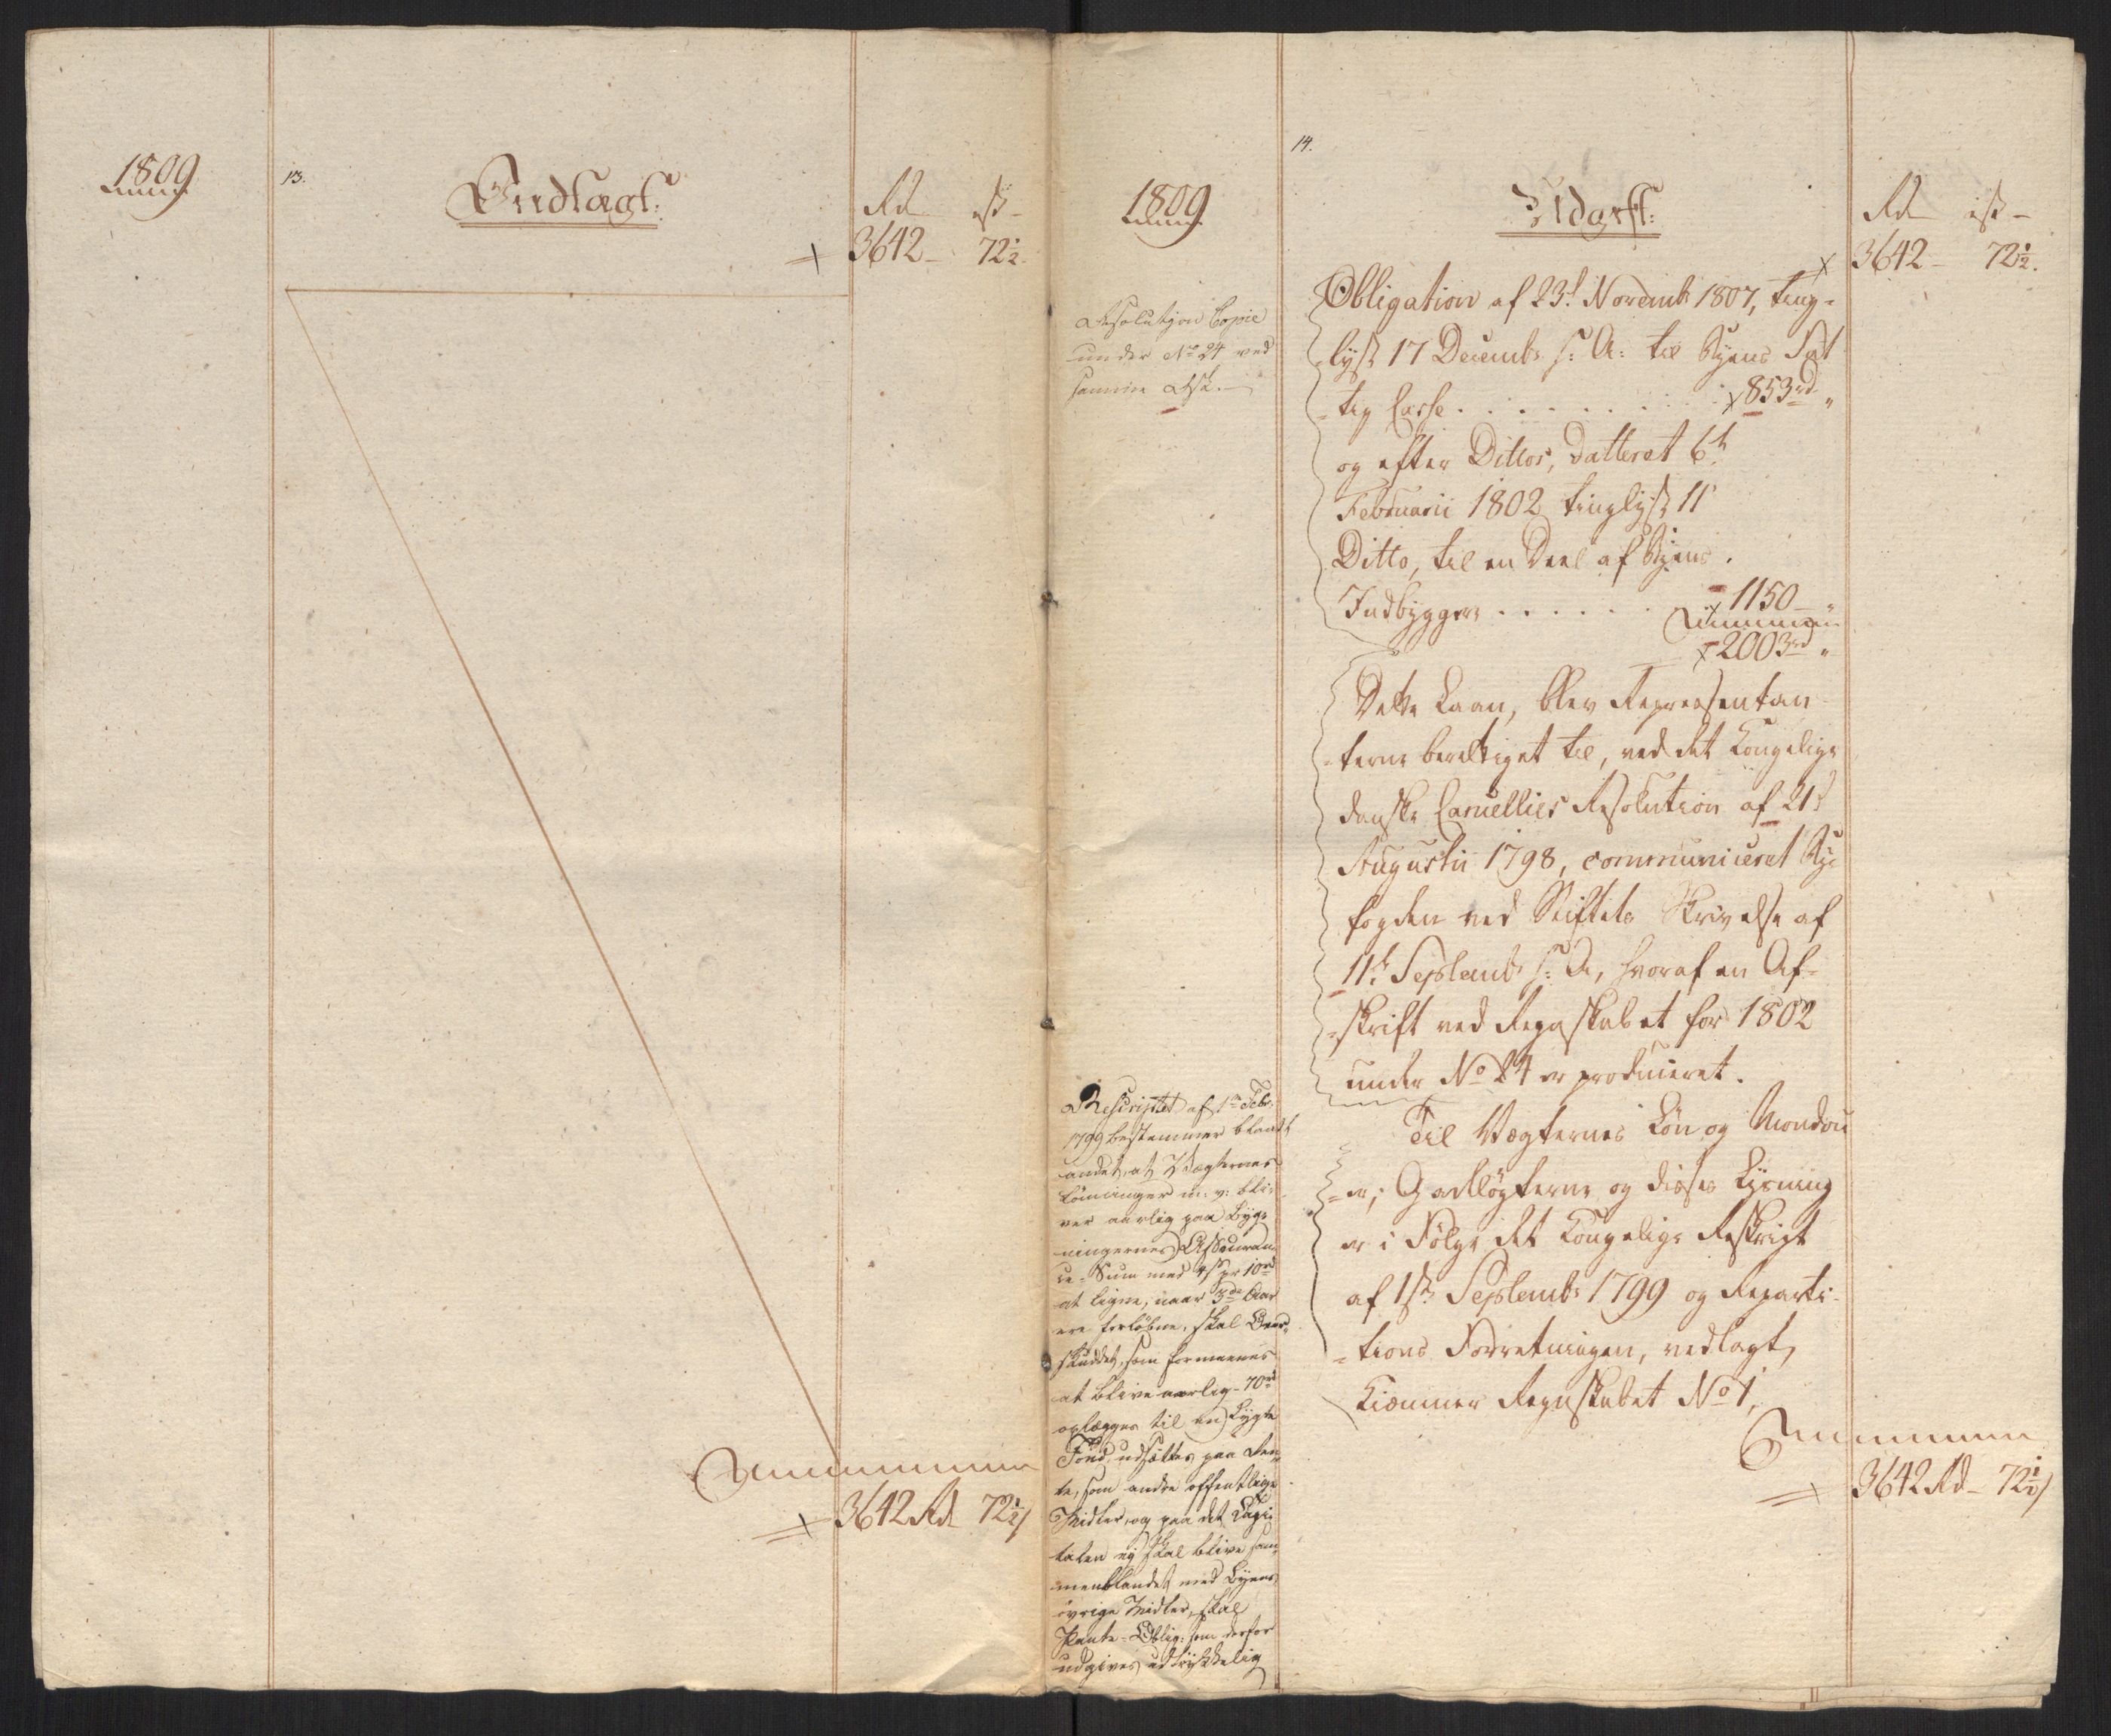 1809
13.
Indtægt:
Rd ß
3642 - 72½.
3642 Rd 72½
1809
14.
Udgift:
Rd ß
3642 - 72½.
Resolutjon Copie
under No 24 ved
samme Rsk.
Obligation af 23d Novemb: 1807, ting-
lyst 17 Decemb: s: A: til Byens Fat-
tig Casse . . . . . . . . 853rd „
og efter Dittos, datteret 6te
Februarii 1802 tinglyst 11
Ditto, til en Deel af Byens
Indbyggere . . . . . . 1150 - „
2003rd „
Dette Laan, blev Repræsentan-
terne berettiget til, ved det Kongelige
danske Cancellies Resolution af 21d
Augustii 1798, communiceret By-
fogden ved Stiftets Skrivelse af
11te Septemb: s: A, hvoraf en Af-
skrift ved Regnskabet for 1802
under No 24 er produceret.
Til Vægternes Løn og Mondou-
er, Gadeløgterne og disses Lysning
er i Følge det Kongelige Reskript
af 1ste Septemb: 1799 og Reparti-
tions Forretningen, vedlagt
Kiæmner Regnskabet No 1,
3642 Rd - 72½
Rescriptet af 1ste Feb:
1799 bestemmer blandt
andet, at Vægternes
Lønninger m: v: bli-
ver aarlig paa Byg-
ningernes Assuran-
ce-Sum med 4ß pr 10rd
at ligne, naar 3de Aar
ere forløbne, skal Over-
skuddet, som formeenes
at blive aarlig 70rd
oplægges til en Lygte
Fond, udsættes paa Ren-
te, som andre offentlige
Midler, og paa det Capi-
talen ej skal blive sam-
menblandet med Byens
øvrige Midler, skal
Pante-Oblig: som derfor
udgives udtrykkelig